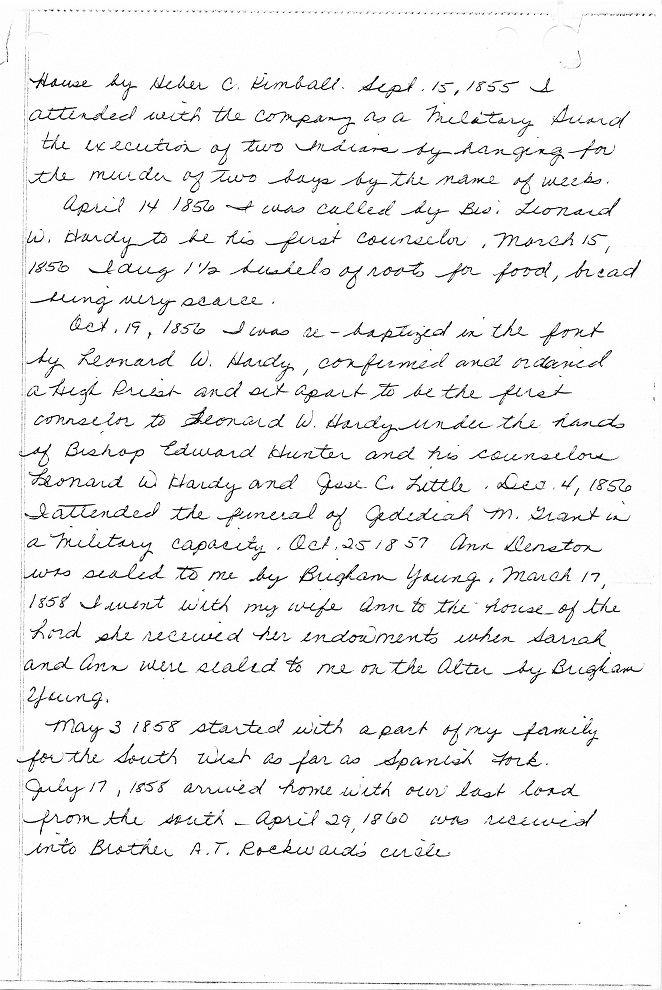 House by Heber C. Kimball. Sept. 15, 1855 I
attended with the company as a Military Guard
the execution of two Indians by hanging for
the murder of two boys by the name of weeks.
April 14 1856 I was called by Bis. Leonard
W. Hardy to be his first counselor, March 15,
1856 I dug 1 1/2 bushels of roots for food, bread
being very scarce.
Oct. 19, 1856 I was re-baptized in the font
by Leonard W. Hardy, confirmed and ordained
a High Priest and set apart to be the first
counselor to Leonard W. Hardy under the hands
of Bishop Edward Hunter and his counselors
Leonard W Hardy and Jesse C. Little. Dec. 4, 1856
I attended the funeral of Jedediah M. Grant in
a Military capacity. Oct. 25 1857 Ann Denston
was sealed to me by Brigham Young. March 17,
1858 I went with my wife Ann to the house of the
Lord she received her endowments when Sarrah
and Ann were sealed to me on the Alter by Brigham
Young.
May 3 1858 started with a part of my family
for the South West as far as Spanish Fork.
July 17, 1858 arrived home with our last load
from the south - April 29, 1860 was received
into Brother A.T. Rockwards circle